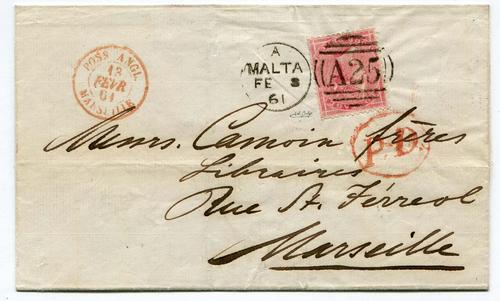 POSS. ANGL.
13
FEVR
61
MARSEILLE
A
MALTA
FE 8
61
A25
P.D.
Messrs. Camoin frères
Libraires
Rue St. Férreol
Marseille